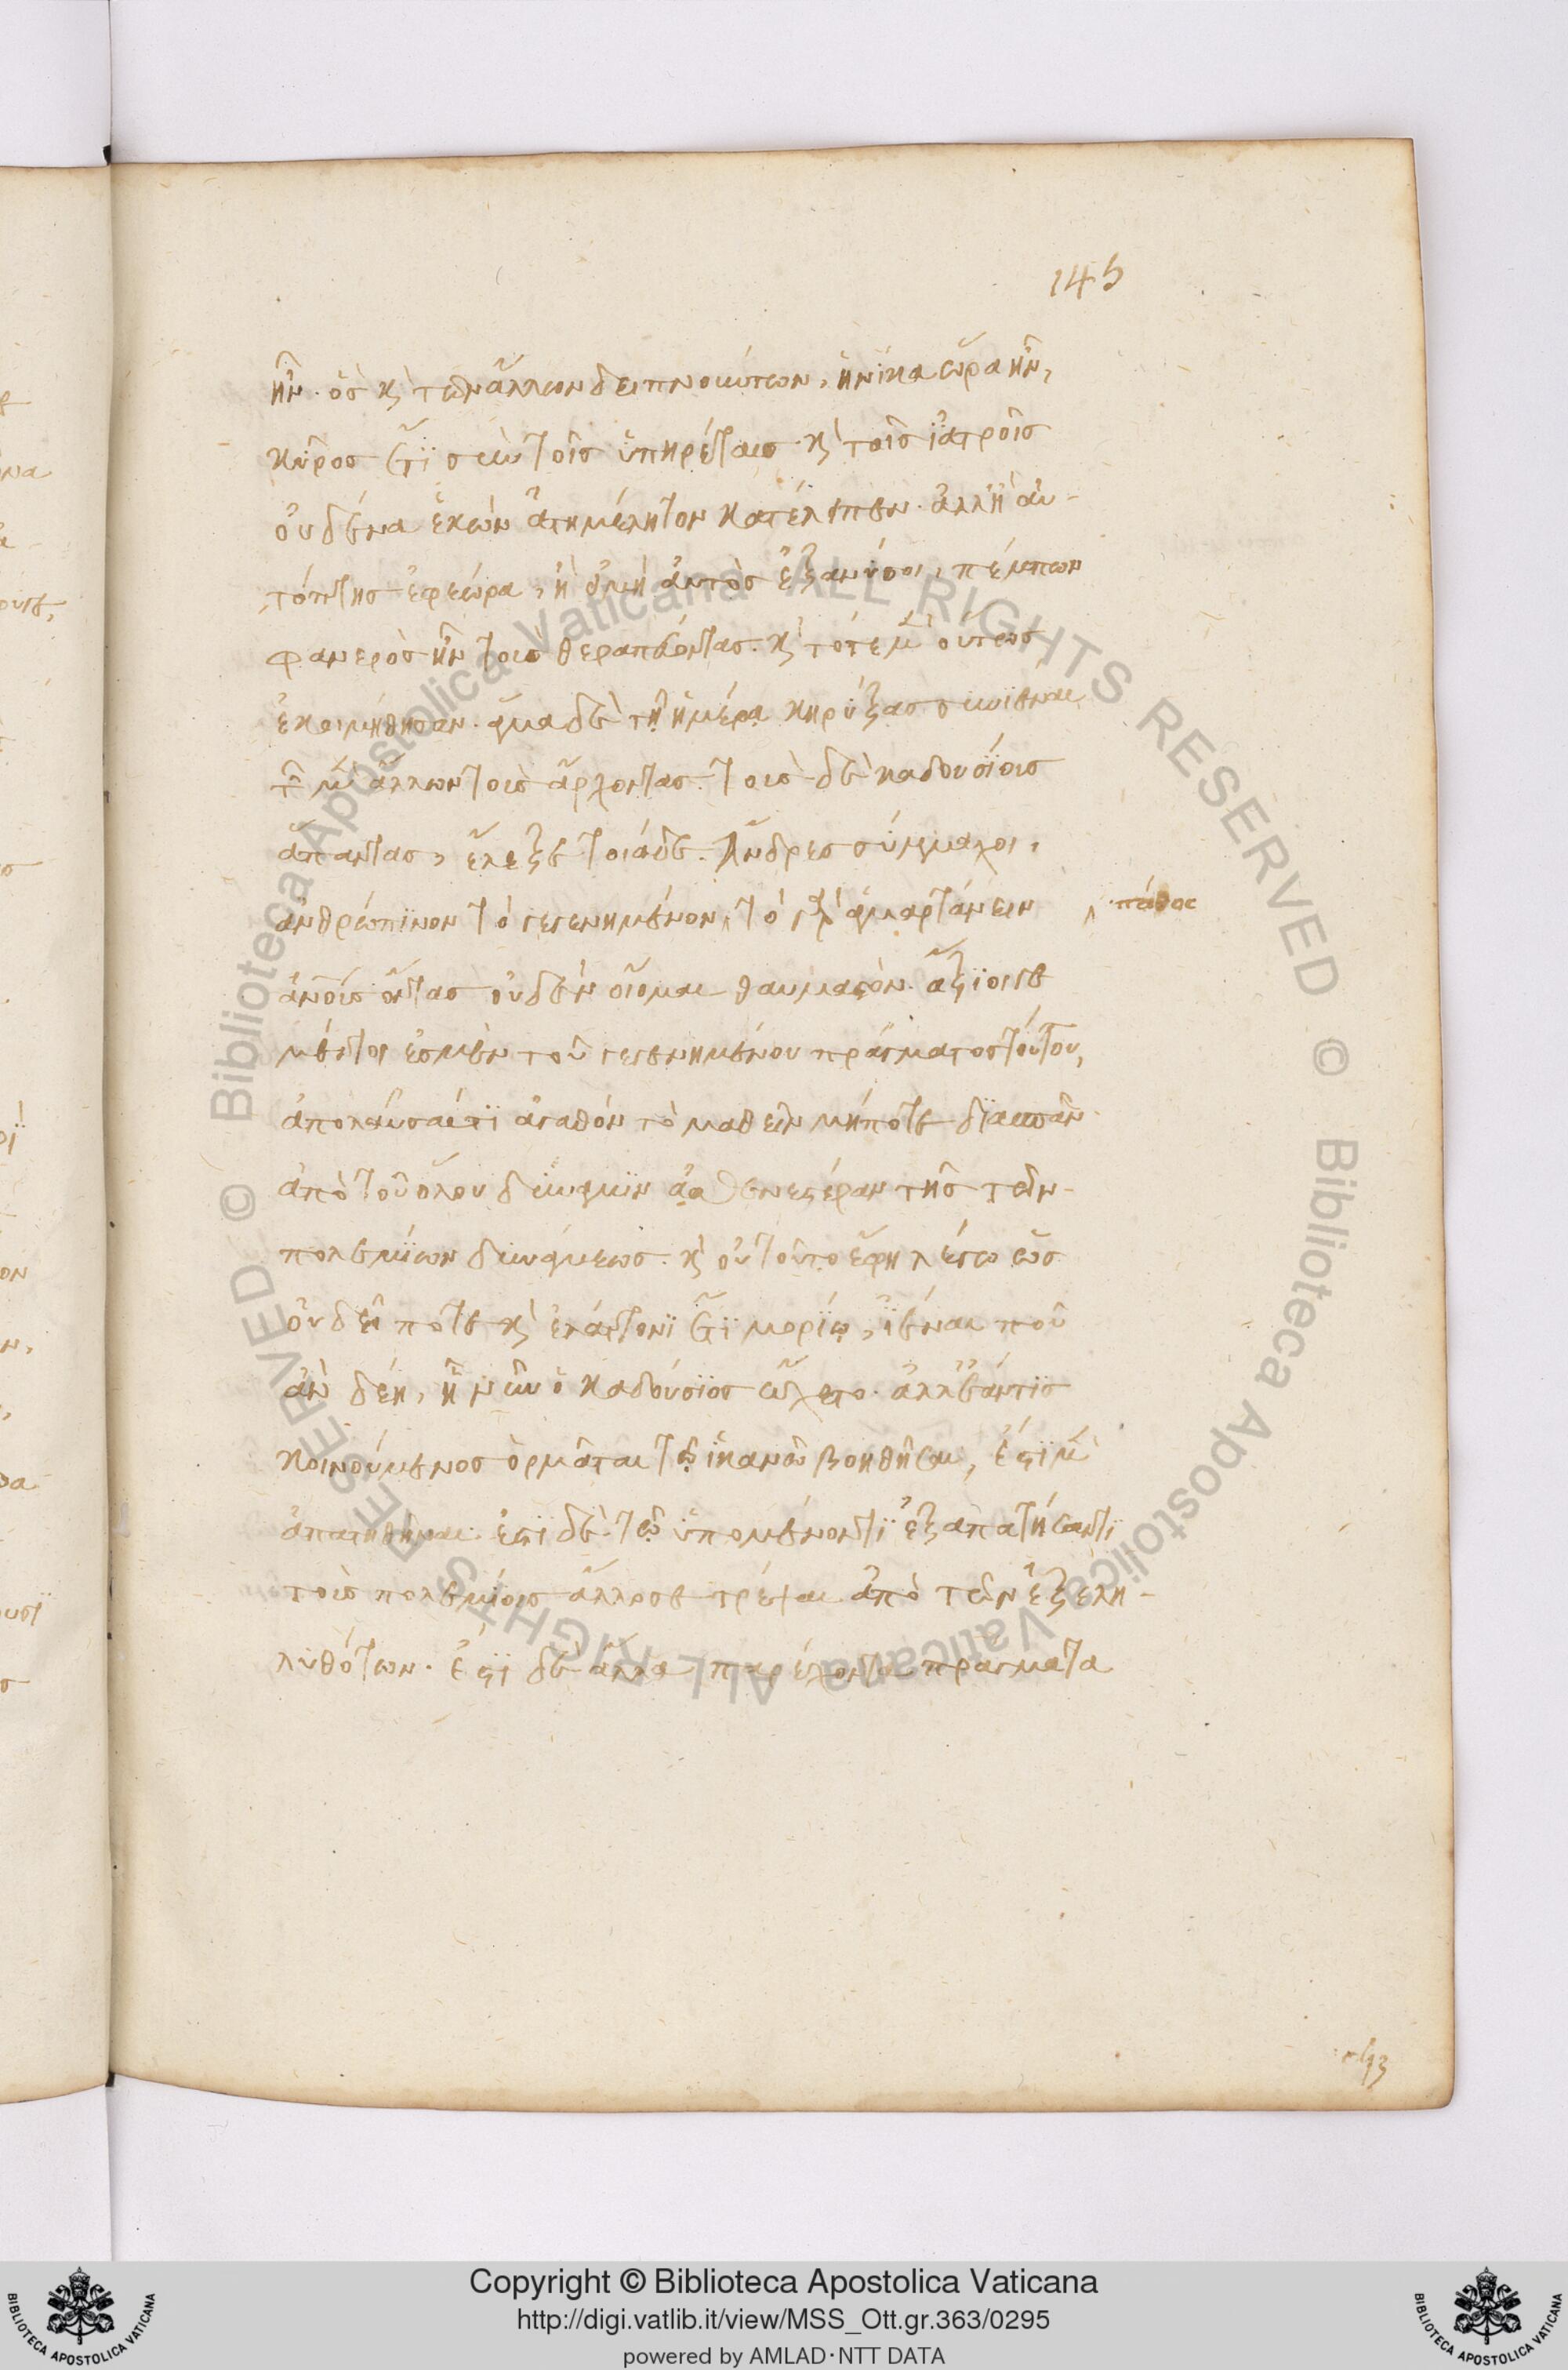 145
ἦν. ὁς κ τῶν ἄλλων δειπνούντων, ἡνίκα ὥρα ἦν,
κῦρος ἔτι σὺν τοῖς ὑπηρέταις κ τοῖς ἰατροῖς
οὐδένα ἑκὼν ἀτημέλητον κατέλιπεν. ἀλλ' ἢ αὐ-
τόπτης ἐφεώρα, ἢ εἰ μὴ αὐτὸς ἐξανύοι, πέμπων
φανερὸς ἦν τοὺς θεραπεύοντας. κ τότε μὲν οὕτως
ἐκοιμήθησαν. ἅμα δὲ τῇ ἡμέρᾳ κηρύξας συνϊέναι
τῶν μὲν ἄλλων τοὺς ἄρχοντας. τοὺς δὲ καδουσίους
ἅπαντας, ἔλεξε τοιάδε. Ἄνδρες σύμμαχοι,
ἀνθρώπινον τὸ γεγενημένον, τὸ γὰρ ἁμαρτάνειν
πάθος
ἀνους ὄντας οὐδὲν οἶομαι θαυμαστόν. ἄξιοί γε
μέντοι ἐσμὲν τοῦ γεγενημένου πράγματος τούτου,
ἀπολαῦσαί τι ἀγαθὸν τὸ μαθεῖν μήποτε διασπᾶν
ἀπὸ τοῦ ὅλου δύναμιν ἀσθενεστέραν τῆς τῶν
πολεμίων δυνάμεως. κ οὐ τοῦτο ἔφη λέγω ὡς
οὐ δεῖ ποτε κ ἐλάττονι ἔτι μορίῳ, ἰέναι ποῦ
ἂν δέῃ, ἢ νῦν ὁ καδούσιος ᾤχετο. ἀλλ' ἐάν τις
κοινούμενος ὁρμᾶται τῷ ἱκανῷ βοηθῆσαι, ἔστι μὲν
ἀπατηθῆναι. ἔστι δὲ τῷ ὑπομένοντι ἐξαπατήσαντι
τοὺς πολεμίους ἄλλοσε τρέψαι ἀπὸ τῶν ἐξελη-
λυθότων. ἔστι δὲ ἄλλα παρέχοντα πράγματα
Copyright © Biblioteca Apostolica Vaticana
http://digi.vatlib.it/view/MSS_Ott.gr.363/0295
powered by AMLAD·NTT DATA